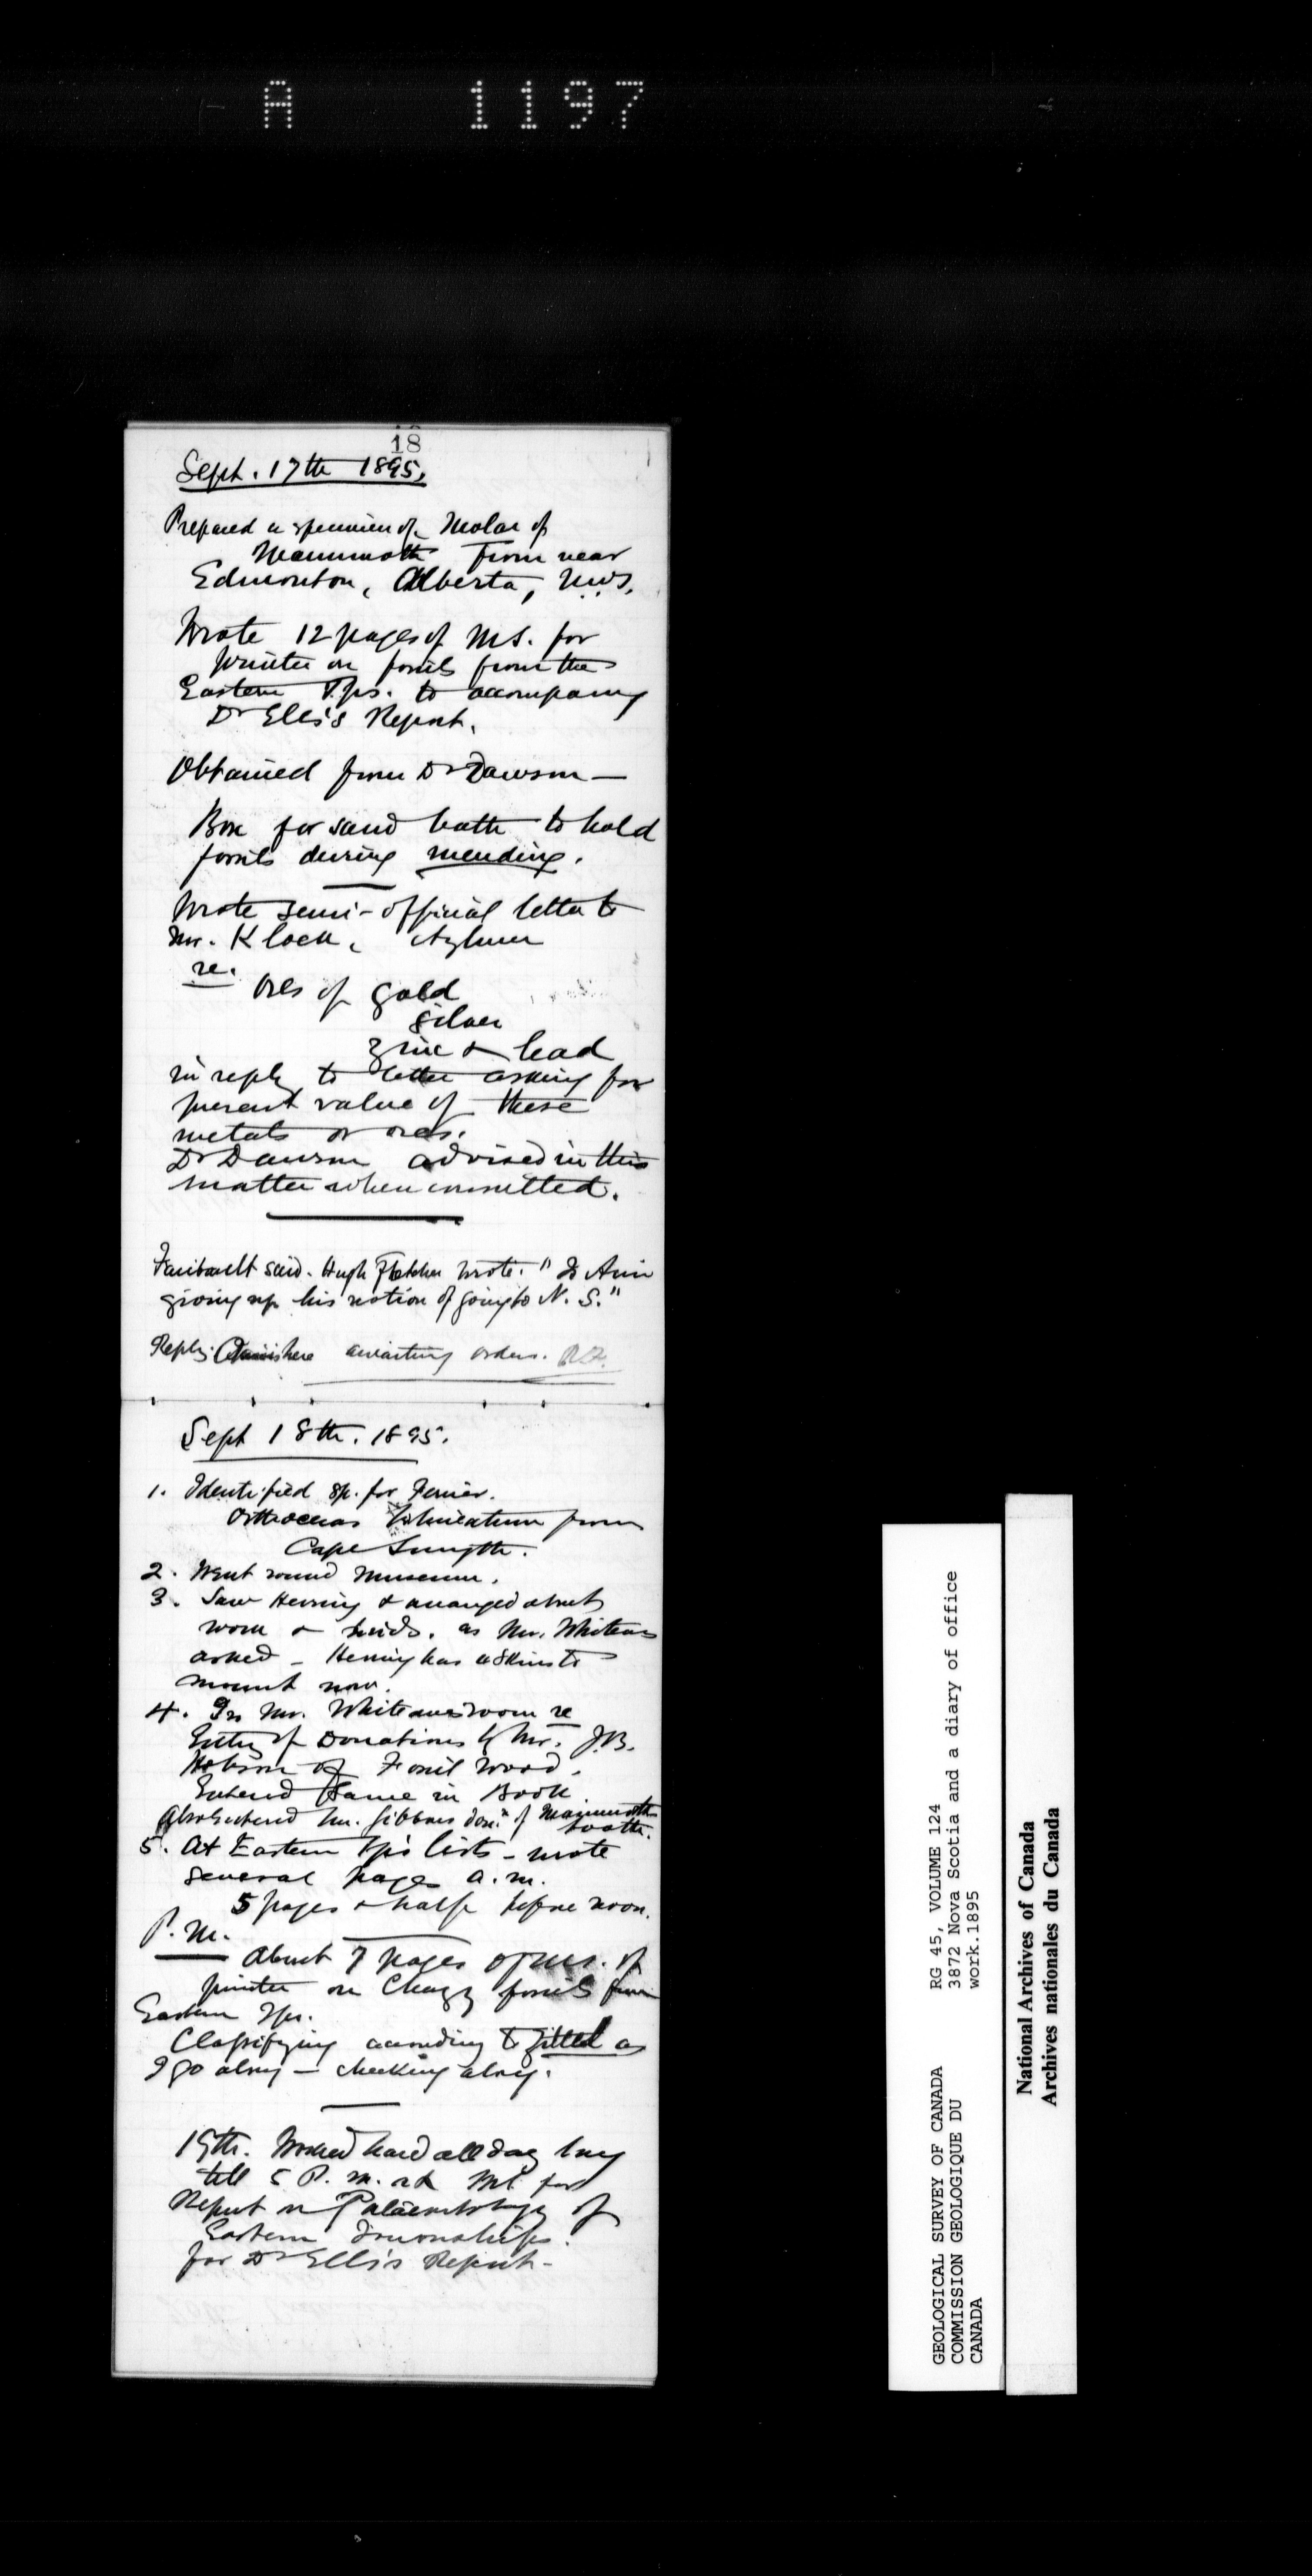 A 1197
18
Sept. 17th 1895.
Prepared a specimen of Molar of
Mammoth from near
Edmonton, Alberta, N.W.T.
Wrote 12 pages of MS. for
printer on fossils from the
Eastern Tps. to accompany
Dr Ells's Report.
Obtained from Dr Dawson —
Box for sand bath to hold
fossils during mending.
Wrote semi-official letter to
Mr. Klock, Aylmer
re.
Ores of gold
silver
zinc & lead
in reply to letter asking for
present value of these
metals or ores.
Dr Dawson advised in this
matter when consulted.
Faribault said. Hugh Fletcher wrote. "Is Ami
giving up his notion of going to N. S."
Reply: Ami is here awaiting orders.
Sept 18th. 1895.
1. Identified sp. for Ferrier.
Orthoceras from
Cape Smyth.
2. Went round Museum.
3. Saw Herring & arranged about
work & birds. as Mr. Whiteaves
asked - Herring has skins to
mount now.
4. In Mr. Whiteaves' room re
Entry of Donations by Mr. J.B.
Hobson of Fossil Wood.
Entered same in Book
Also Entered Mr. Gibbons don.n of Mammoth
tooth.
5. At Eastern Tps lists - wrote
several pages a.m.
5 pages & half before noon.
P.M.
About 7 pages of MS. of
printer on Chazy fossils from
Eastern Tps.
Classifying according to Zittel as
I go along — checking along.
19th. Worked hard all day long
till 5 P.M. at MS. for
Report on Palaeontology of
Eastern Townships.
for Dr Ells's Report -
GEOLOGICAL SURVEY OF CANADA
COMMISSION GEOLOGIQUE DU
CANADA
RG 45, VOLUME 124
3872 Nova Scotia and a diary of office
work.1895
National Archives of Canada
Archives nationales du Canada